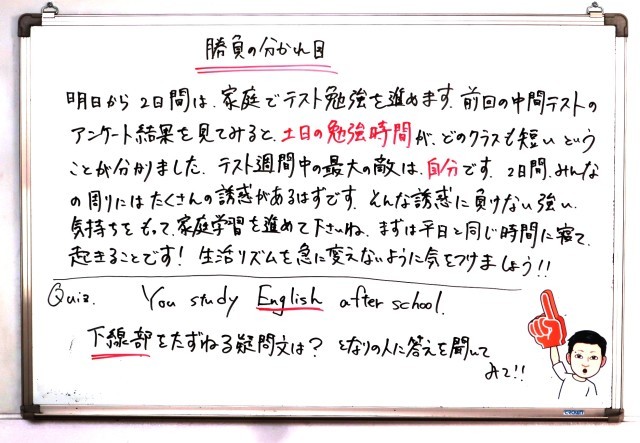 勝負の分かれ目
明日から2日間は、家庭でテスト勉強を進めます。前回の中間テストの
アンケート結果を見てみると、土日の勉強時間が、どのクラスも短いという
ことが分かりました。テスト週間中の最大の敵は、自分です。2日間、みんな
の周りにはたくさんの誘惑があるはずです。そんな誘惑に負けない強い
気持ちをもって、家庭学習を進めて下さいね。まずは平日と同じ時間に寝て、
起きることです!生活リズムを急に変えないように気をつけましょう!!
Quiz. You study English after school.
下線部をたずねる疑問文は?となりの人に答えを聞いて
みて!!